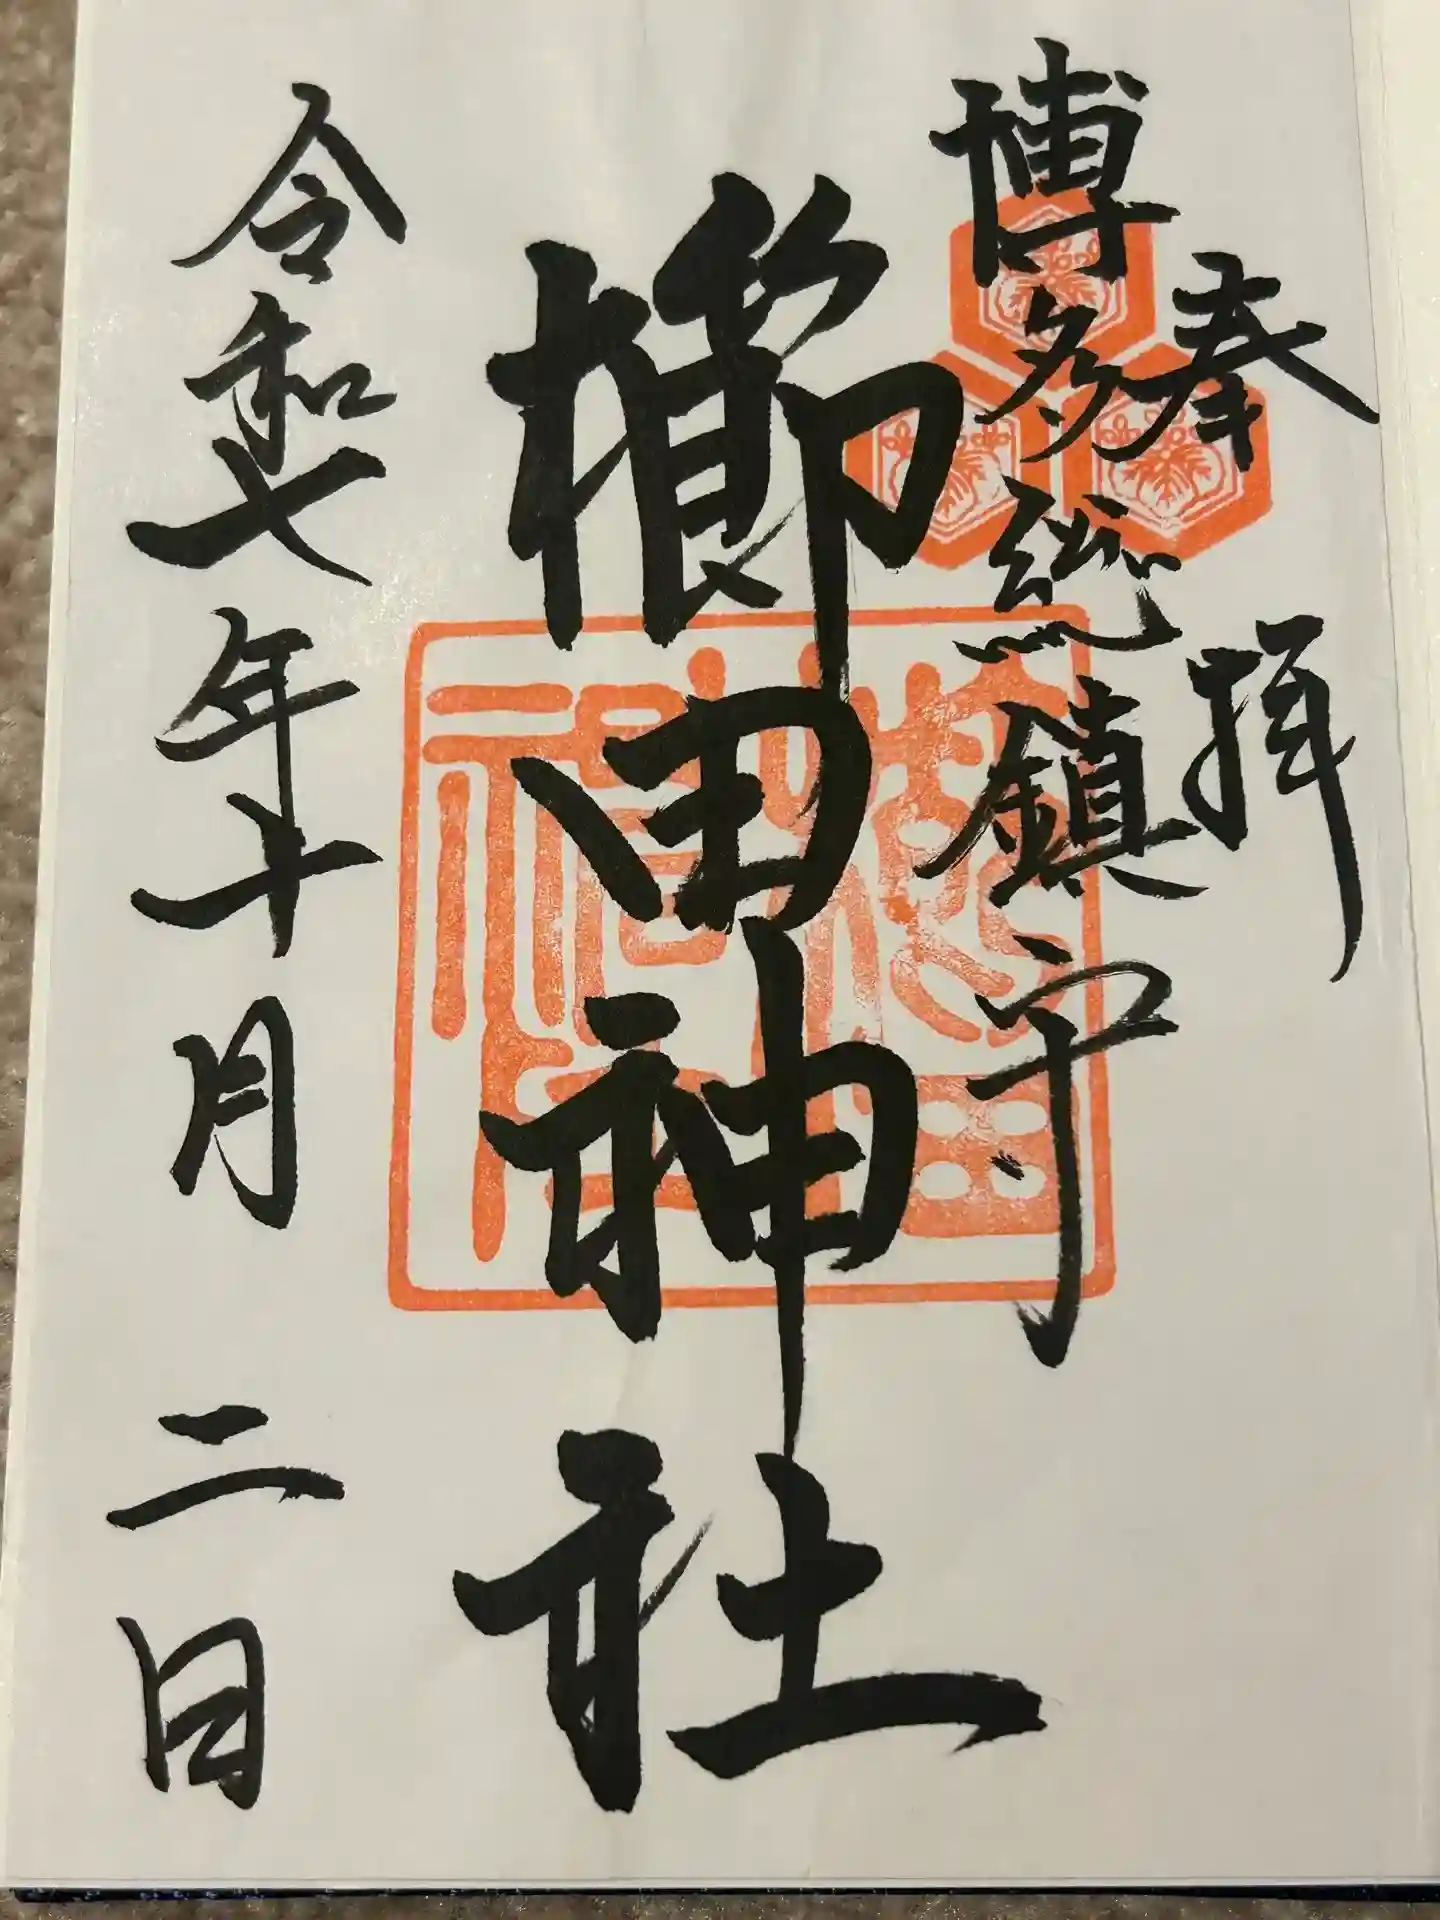 奉拝
博多総鎮守
櫛田神社
令和七年十月二日